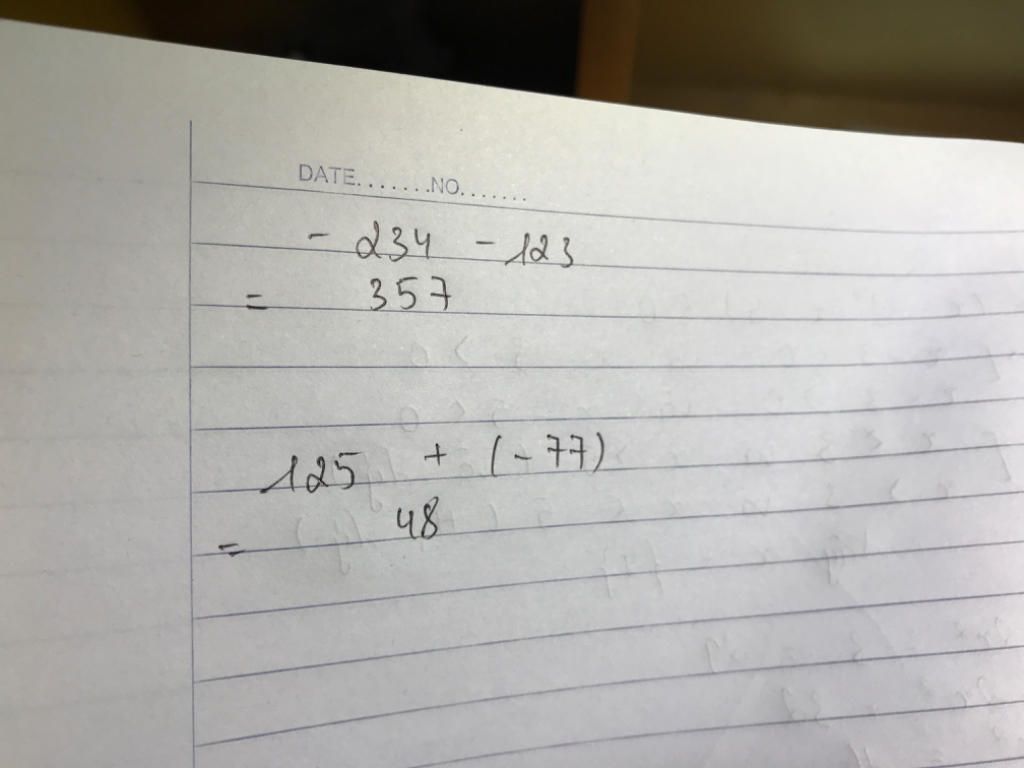 DATE.......NO.......
- 234 - 123
= 357
125 + (-77)
= 48